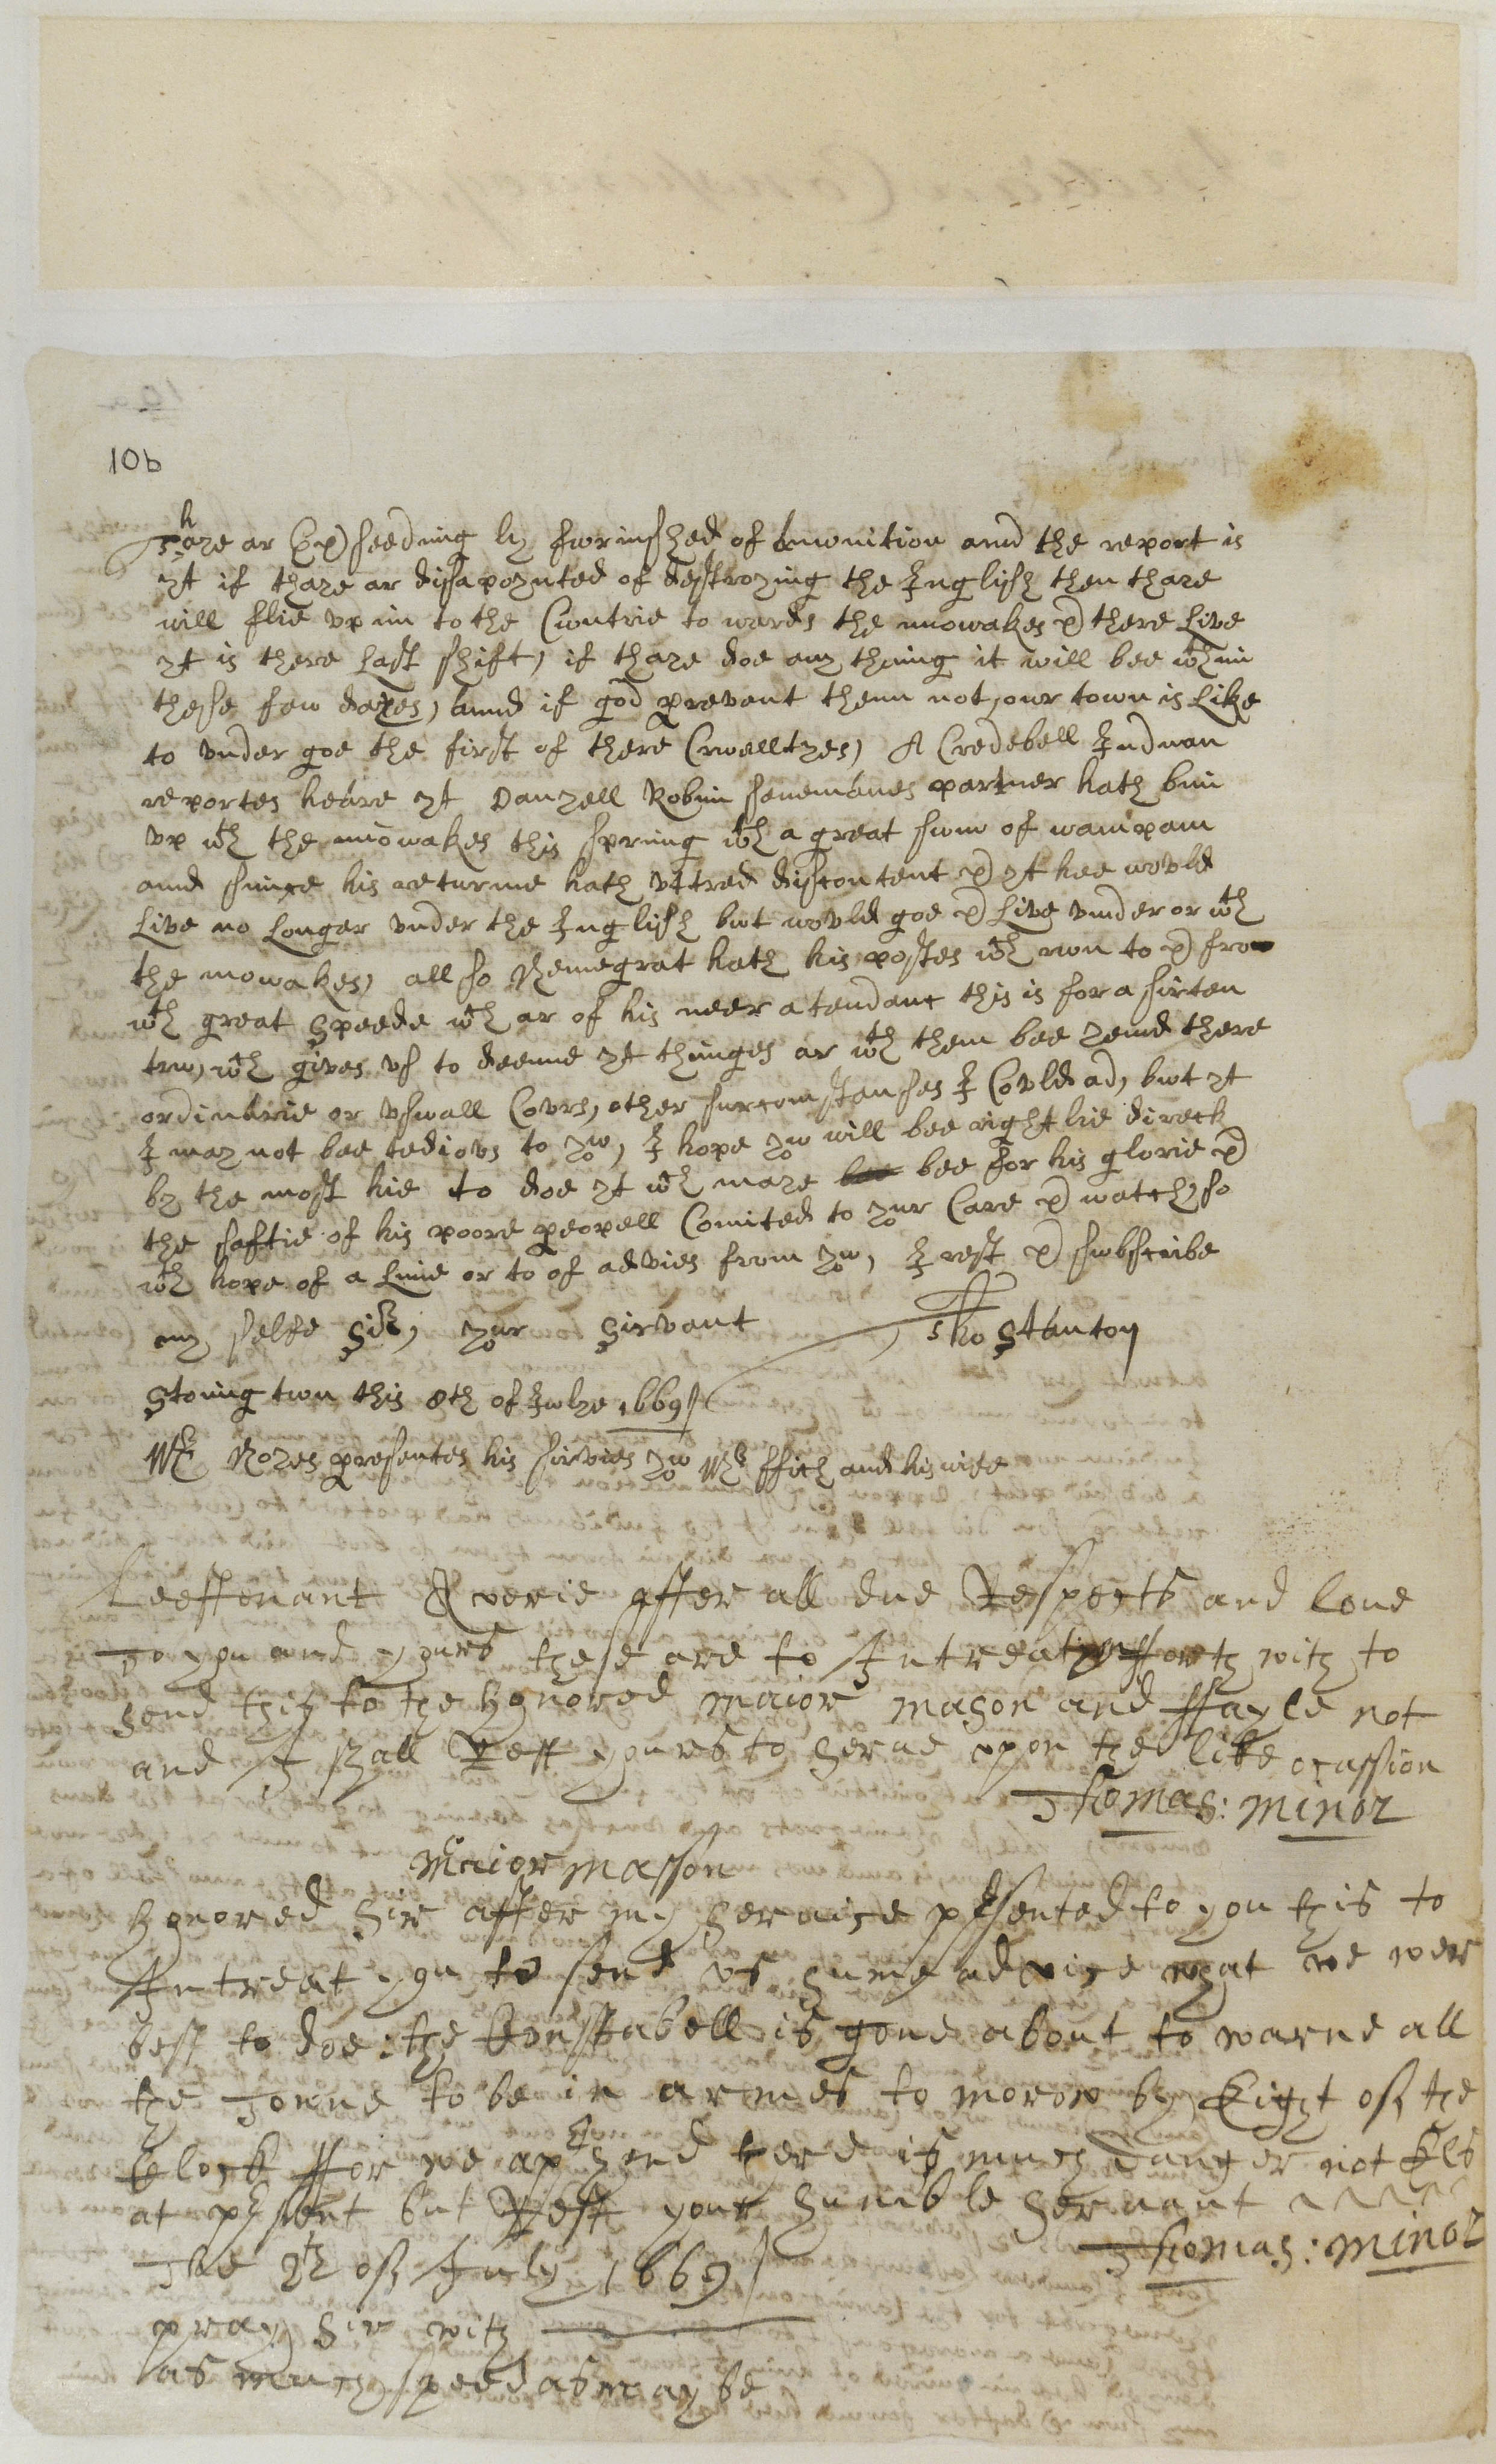 10b
thaye ar exseeding ly fwrinshed of Amonition amd the report is
yt if thaye ar dissapoynted of destroying the Inglish then thare
will flie vp in to the Cwntrie to wards the mowakes & there Live
yt is there Last shift, if thaye doe any thing it will bee wth in
these few dayes, amd if god prevent them not, owr town is Like
to vnder goe the first of there Crwelltyes, A Credebell Indnan
reportes heare yt Danyell Robin senemanes partner hath bin
vp wth the mowakes this spring wth a great swm of wampam
amd since his returne hath vttred discontent & yt hee wovld
Live no Longer vnder the Inglish bwt wovld goe & Live vnder or wth
the mowakes, all so Nemegrat hath his postes wch rwn to & fro
wth great speede wch ar of his neer atendanc this is for a sirten
trw, wch gives vs to deeme yt thinges ar wth them bee yend there
ordinarie or vswall Covrs, other sircomstanses I Covld ad, bwt yt
I may not bee tediovs to yw, I hope yw will bee right lie direck
by the most hie to doe yt wch maye bee bee for his glorie &
the saftie of his poore peopell Comited to ywr Care & watch, so
wth hope of a Line or to of advies from yw, I rest & swbscribe
my selfe Sir, ywr Sirvant Tho Stanton
Stoning twn this 8th of Jwlye 1669
Mr Noyes presentes his sirvies yw Mr ffich and his wife
Leeftenant Averie after all due Respects and love
To you and yours these are to Intreat you fforth with to
send this to the honored maior mason and ffayle not
and I shall Rest yours to serve upon the like ocassion
Thomas: minor
Maior masson
honored Sir after my servise presented to you this to
Intreat you to send us sume advice what we wer
best to doe: the Constabell is gone about to warne all
the Towne to be in armes to morow by Eight of the
Clock ffor we aprhend here is much danger not Els
at prsent but Rest your humble servant
Thomas: minor
The 9th of July 1669
pray Sir with
as much speed as may be